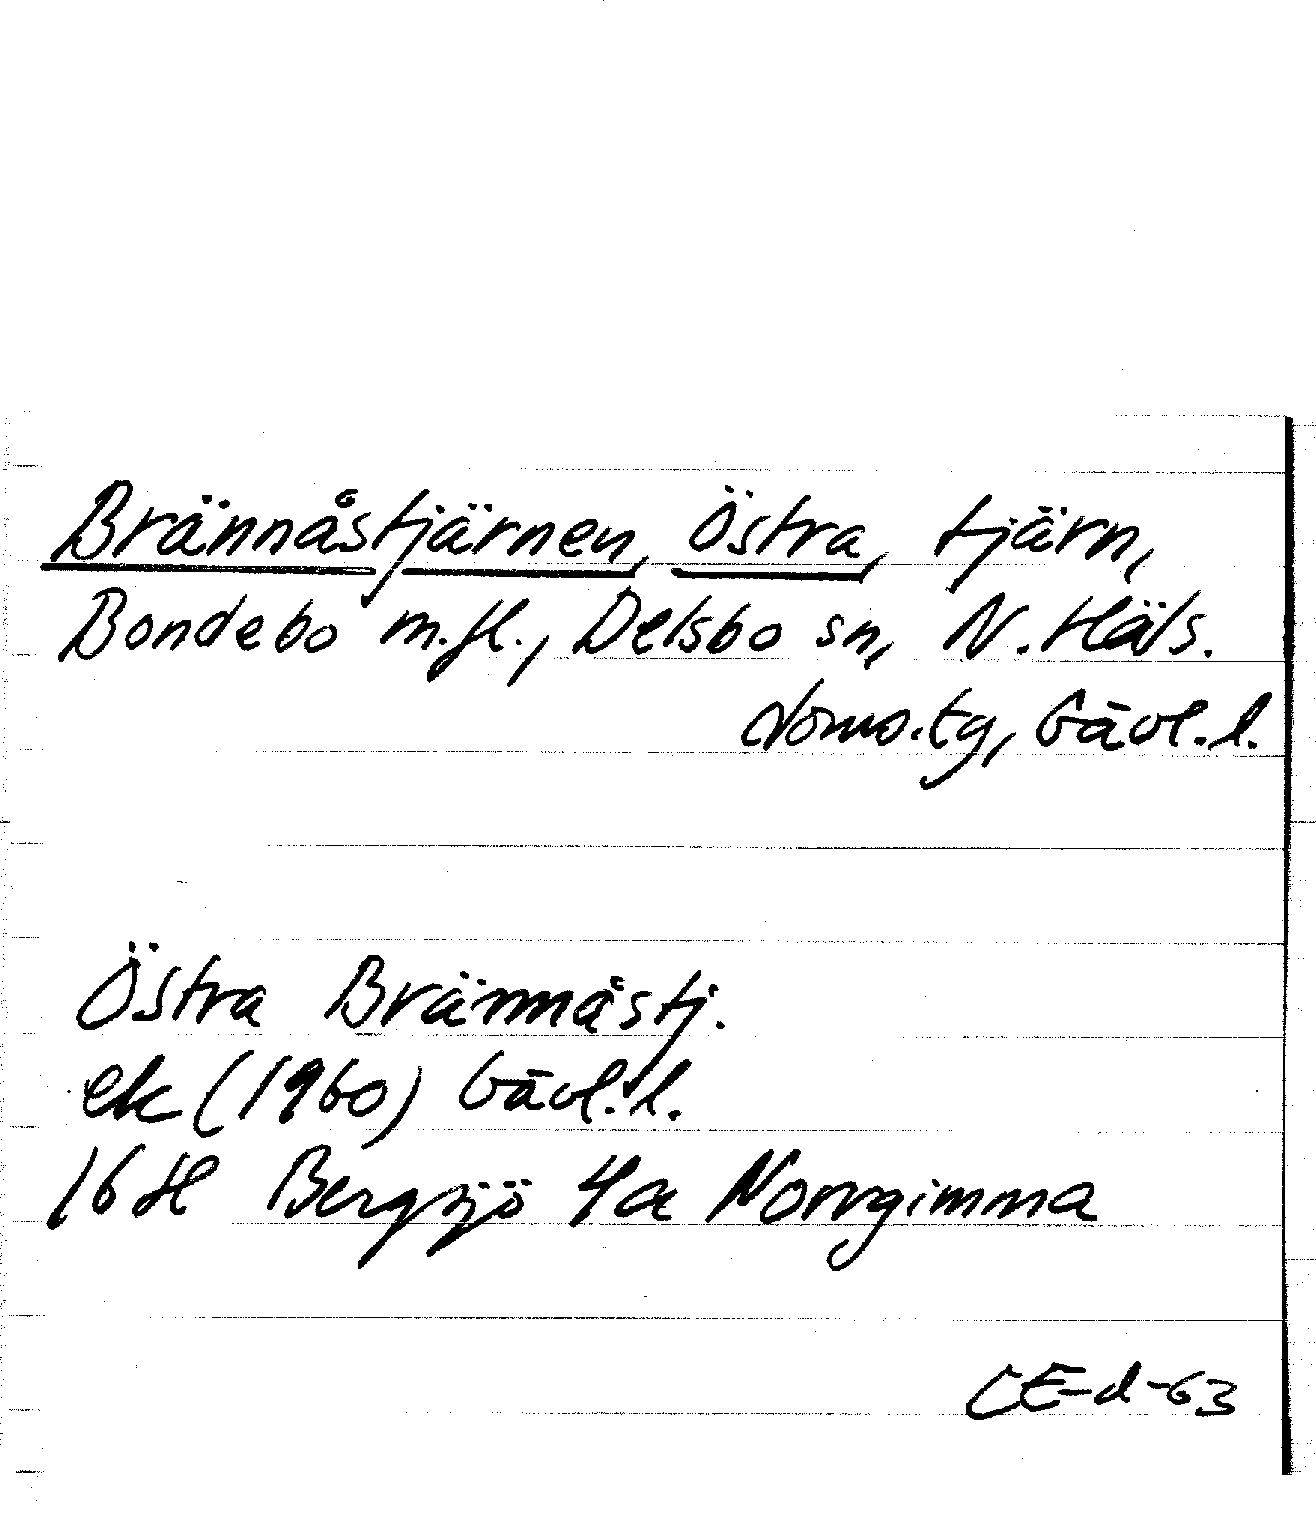 Brännåstjärnen, Östra, tjärn,
Bondebo m.fl., Delsbo sn, N. Häls.
doms.tg, Gävl.l.
Östra Brännåstj.
ek (1960) Gävl.l.
16 H Bergsjö 4a Norrgimma
CE-d-63